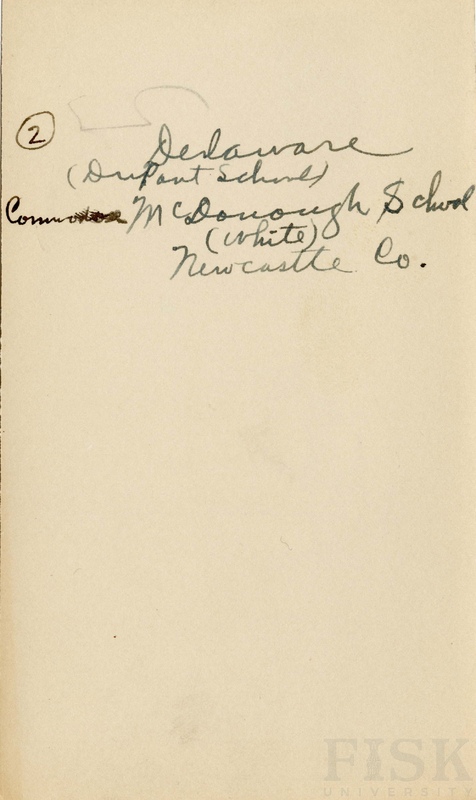 2
Delaware
(DuPont School)
Commodore McDonough School
(White)
Newcastle Co.
FISK
UNIVERSITY